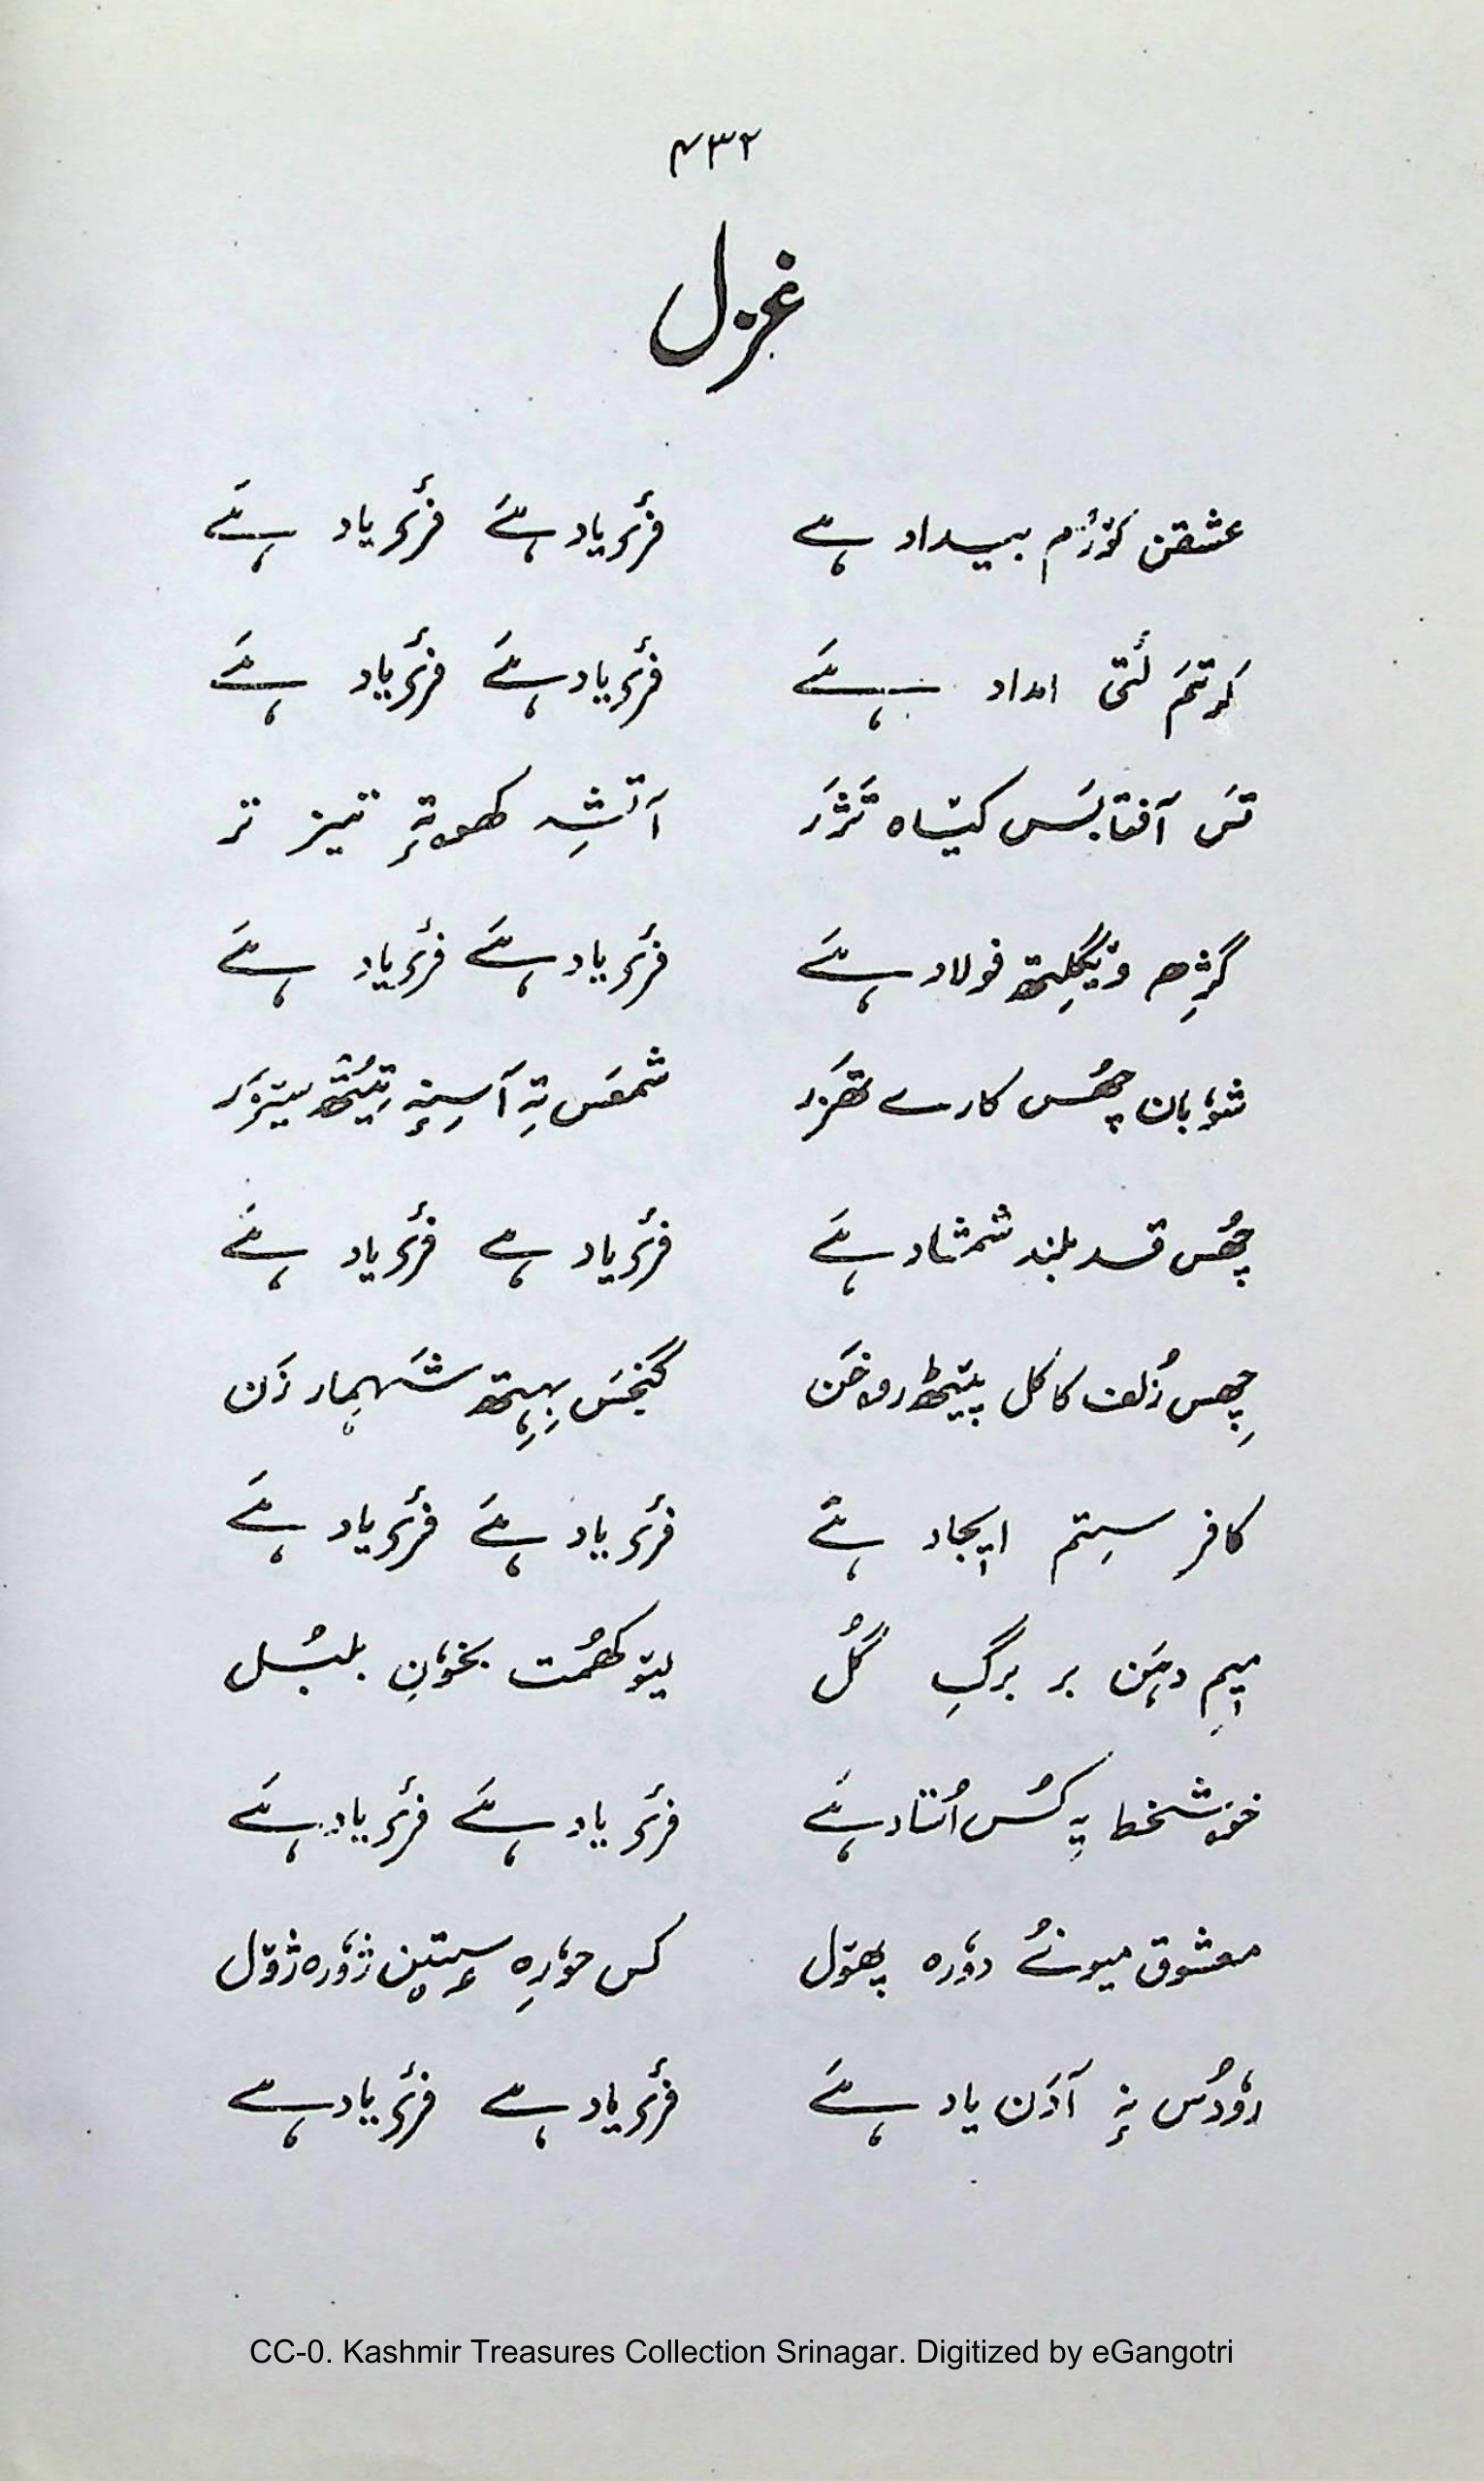 ۴۳۲
غزل
عشقن کوٚرُم بیداد ہے فرٔیاد ہے فرٔیاد ہے
کَرتَم لٔتی امداد ہے فرٔیاد ہے فرٔیاد ہے
تَس آفتابَس کیٚاہ تَژَر آتَشِہ کھوتہٕ تیز تر
گژھِ وٕیگلِتھ فولاد ہے فرٔیاد ہے فرٔیاد ہے
شوٗبان چھُس کارے تھَزَر شمعَس تہِ آسہِ نہٕ تیُتھ سیزَر
چھُس قد بلند شمشاد ہے فرٔیاد ہے فرٔیاد ہے
چھِس زُلف کاکل پیٚٹھ رۄخَن گنجَس بہِتھ شَہمار زَن
کافر سِتم ایجاد ہے فرٔیاد ہے فرٔیاد ہے
میٖم دہَن بر برگِ گُل لیوٚکھمُت بخوٗنِ بلبُل
خۄشخط یہِ کُس اُستاد ہے فرٔیاد ہے فرٔیاد ہے
معشوق میونُے دوٗرہ پھوٚل کس حوٗرِہ سٟتین ژوٗرہ ژوٚل
روٗدُس نہٕ آدَن یاد ہے فرٔیاد ہے فرٔیاد ہے
CC-0. Kashmir Treasures Collection Srinagar. Digitized by eGangotri